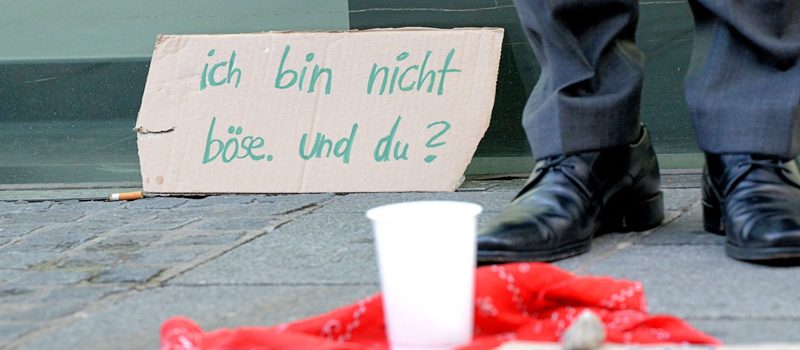 ich bin nicht
böse. und du?